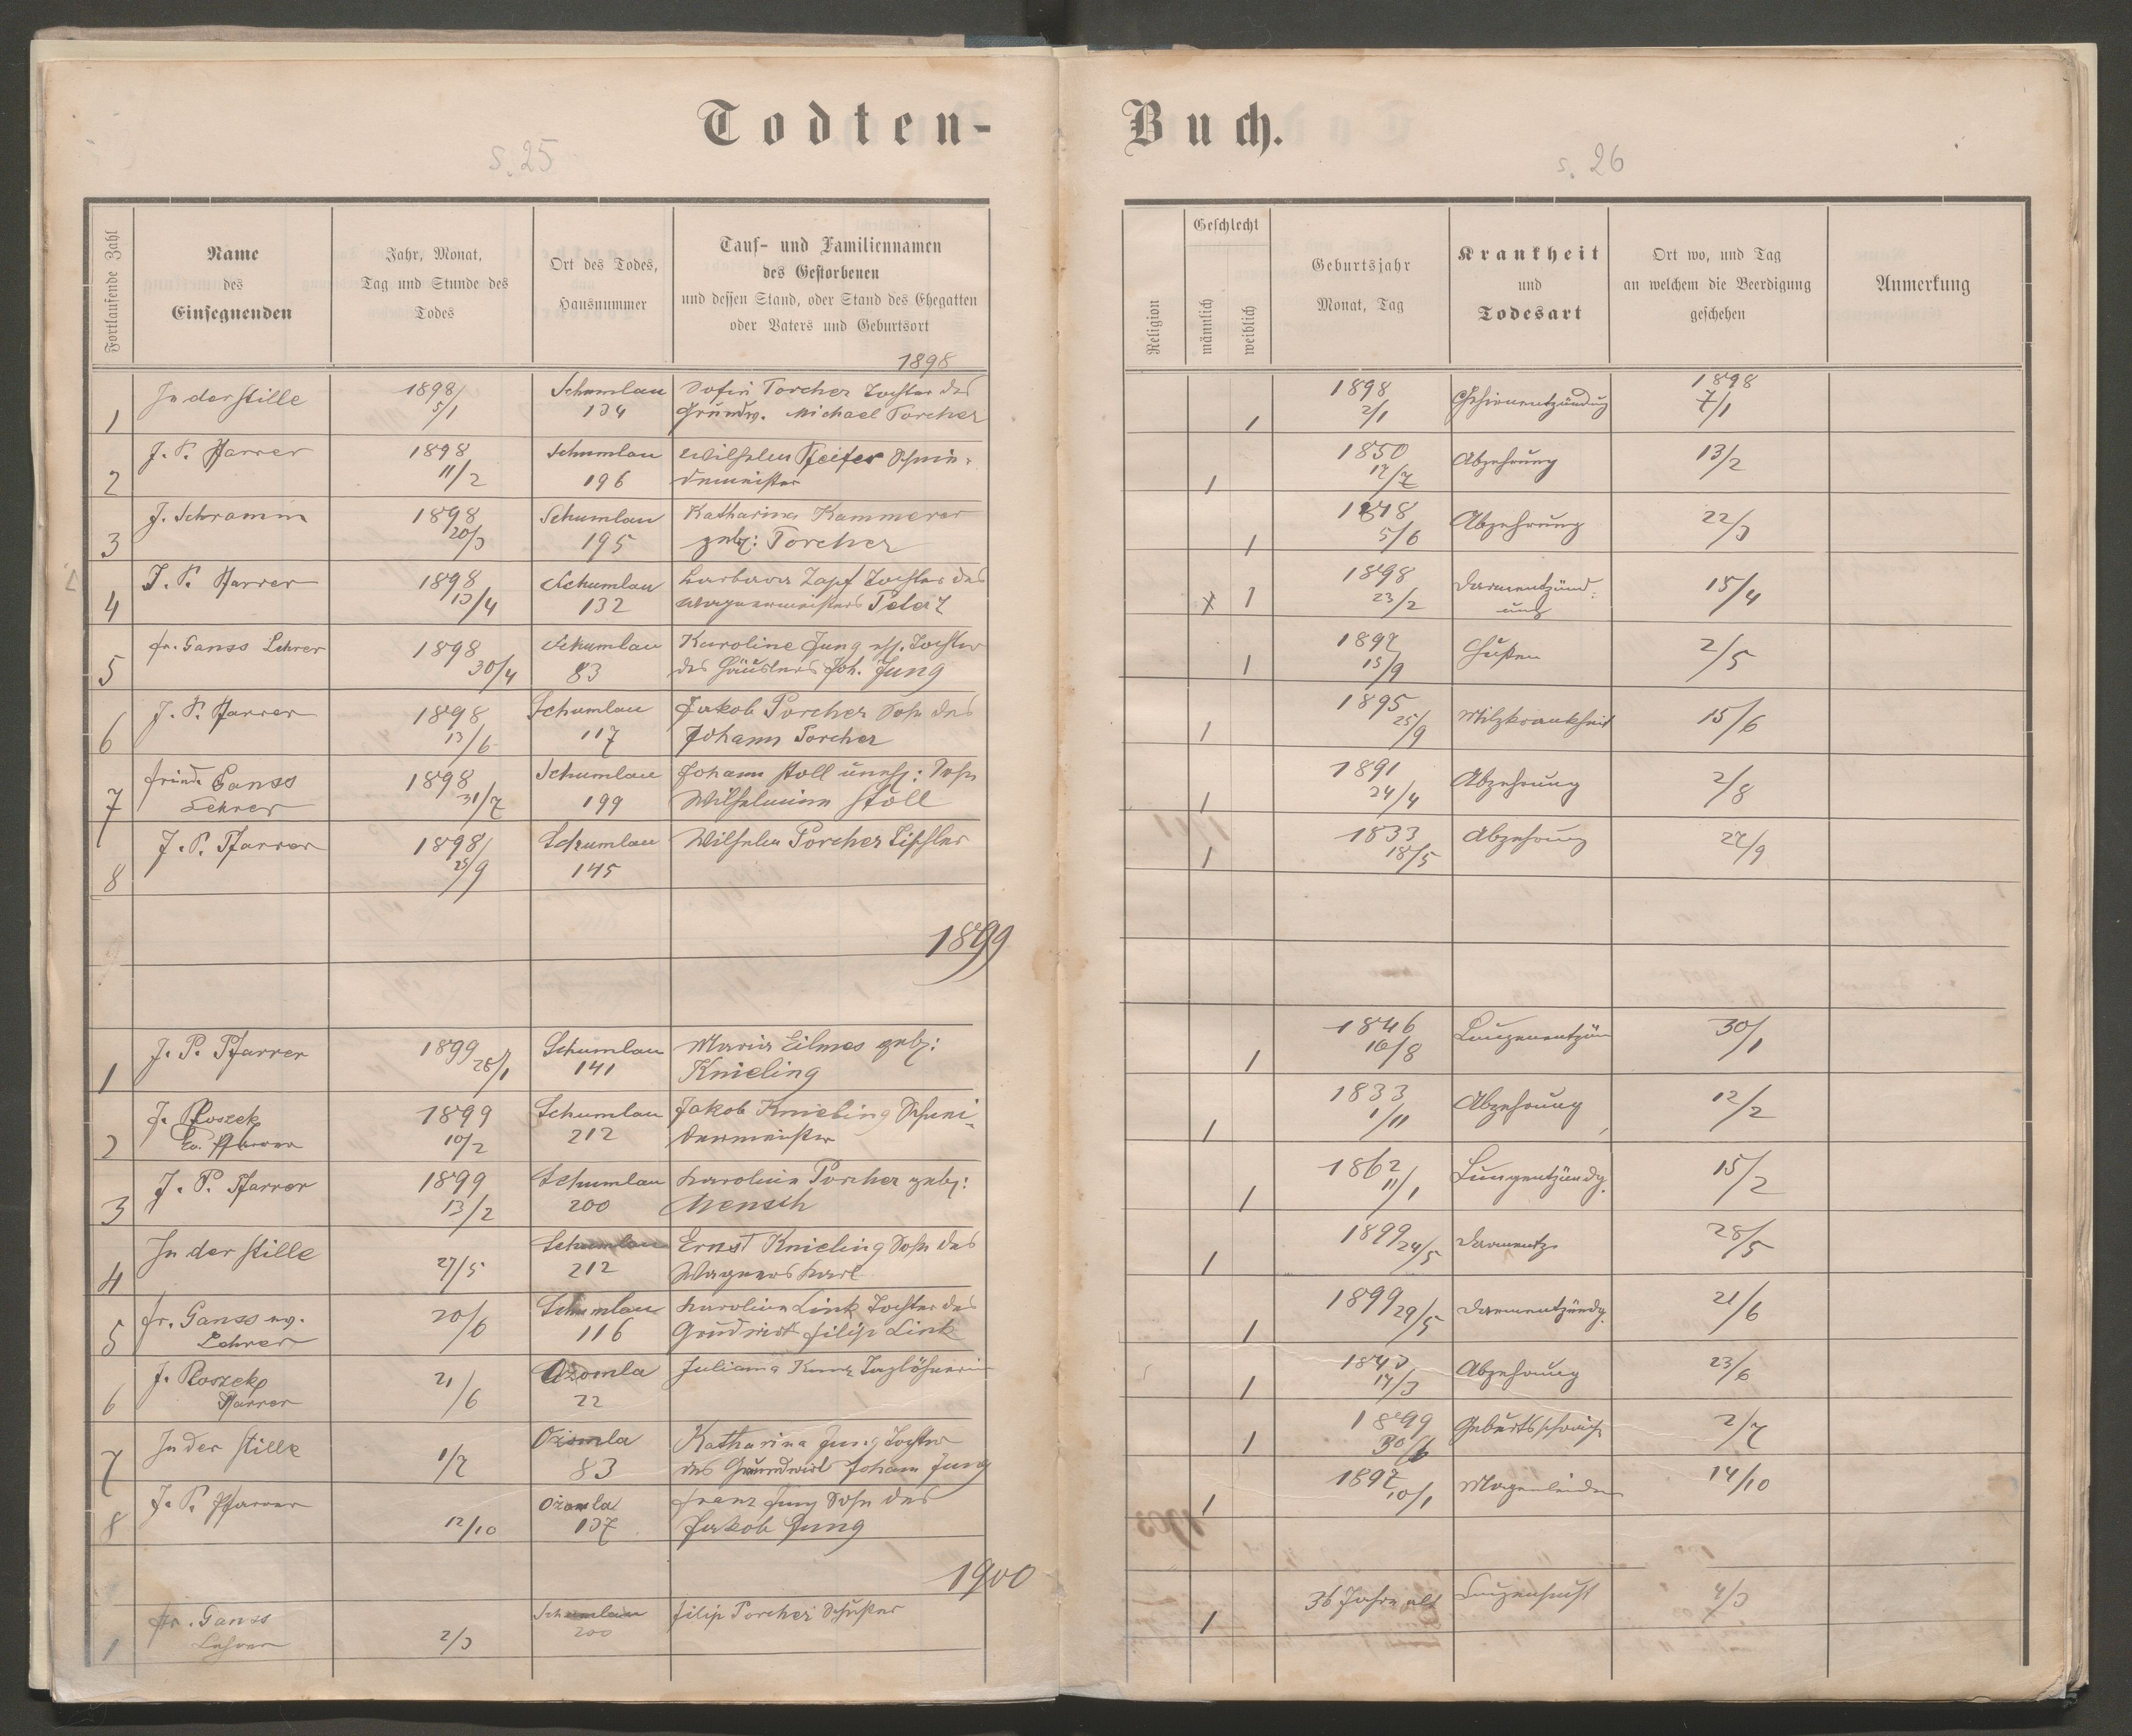 Todten-
Buch.
S. 25
s. 26
Fortlaufende Zahl
Name
des
Einsegnenden
Jahr, Monat,
Tag und Stunde des
Todes
Ort des Todes,
Hausnummer
Tauf- und Familiennamen
des Gestorbenen
und dessen Stand, oder Stand des Ehegatten
oder Vaters und Geburtsort
Religion
Geschlecht
männlich
weiblich
Geburtsjahr
Monat, Tag
Krankheit
und
Todesart
Ort wo, und Tag
an welchem die Beerdigung
geschehen
Anmerkung
1898
1 In der Stille 1898 5/1 Schumlau 134 Sofie Porcher Tochter des
Grundw. Michael Porcher 1 1898 2/1 Gehirnentzündug 1898 7/1
2 J. P. Pfarrer 1898 11/2 Schumlau 196 Wilhelm Pfeifer Schnei-
dermeister 1 1850 12/7 Abzehrung 13/2
3 J. Schramm 1898 20/3 Schumlau 195 Katharina Kammerer
geb: Porcher 1 1848 5/6 Abzehrung 22/3
4 J. P. Pfarrer 1898 13/4 Schumlau 132 Barbara Zapf Tochter des
Wagnermeisters Peter Z 1 1898 23/2 Darmentzünd-
ung 15/4
5 Fr. Ganss Lehrer 1898 30/4 Schumlau 83 Karoline Jung ehl. Tochter
des Häuslers Joh. Jung 1 1897 15/9 Husten 2/5
6 J. P. Pfarrer 1898 13/6 Schumlau 117 Jakob Porcher Sohn des
Johann Porcher 1 1895 25/9 Milzkrankheit 15/6
7 Ganss
Lehrer 1898 31/7 Schumlau 199 Johann Stoll uneh: Sohn
Wilhelmine Stoll 1 1891 24/4 Abzehrung 2/8
8 J. P. Pfarrer 1898 25/9 Schumlau 145 Wilhelm Porcher Tischler 1 1833 18/5 Abzehrung 27/9
1899
1 J. P. Pfarrer 1899 28/1 Schumlau 141 Maria Eilmes geb:
Knieling 1 1846 16/8 Lungenentzün 30/1
2 J. Roszek
Ev. Pfarrer 1899 10/2 Schumlau 212 Jakob Knieling Schnei-
dermeister 1 1833 1/11 Abzehrung 12/2
3 J. P. Pfarrer 1899 13/2 Schumlau 200 Karolina Porcher geb:
Mensch 1 1862 11/1 Lungentzündg. 15/2
4 In der Stille 27/5 Schumlau 212 Ernst Knieling Sohn des
Wagners Karl 1 1899 24/5 Darmentz. 28/5
5 Fr. Ganss ev.
Lehrer 20/6 Schumlau 116 Karolina Link Tochter des
Grundwirt Filip Link 1 1899 29/5 Darmentzündg. 21/6
6 J. Roszek
Pfarrer 21/6 Ożomla 22 Juliana Kunz Taglöhnerin 1 1843 17/3 Abzehrung 23/6
7 In der Stille 1/7 Ożomla 83 Katharina Jung Tochter
des Grundwirt Johann Jung 1 1899 30/6 Geburtsschwäche 2/7
8 J. P. Pfarrer 12/10 Ożomla 137 Franz Jung Sohn des
Jakob Jung 1 1897 10/1 Magenleiden 14/10
1900
1 Fr. Ganss
Lehrer 2/3 Schumlau 200 Filip Porcher Schuster 1 36 Jahre alt 4/3